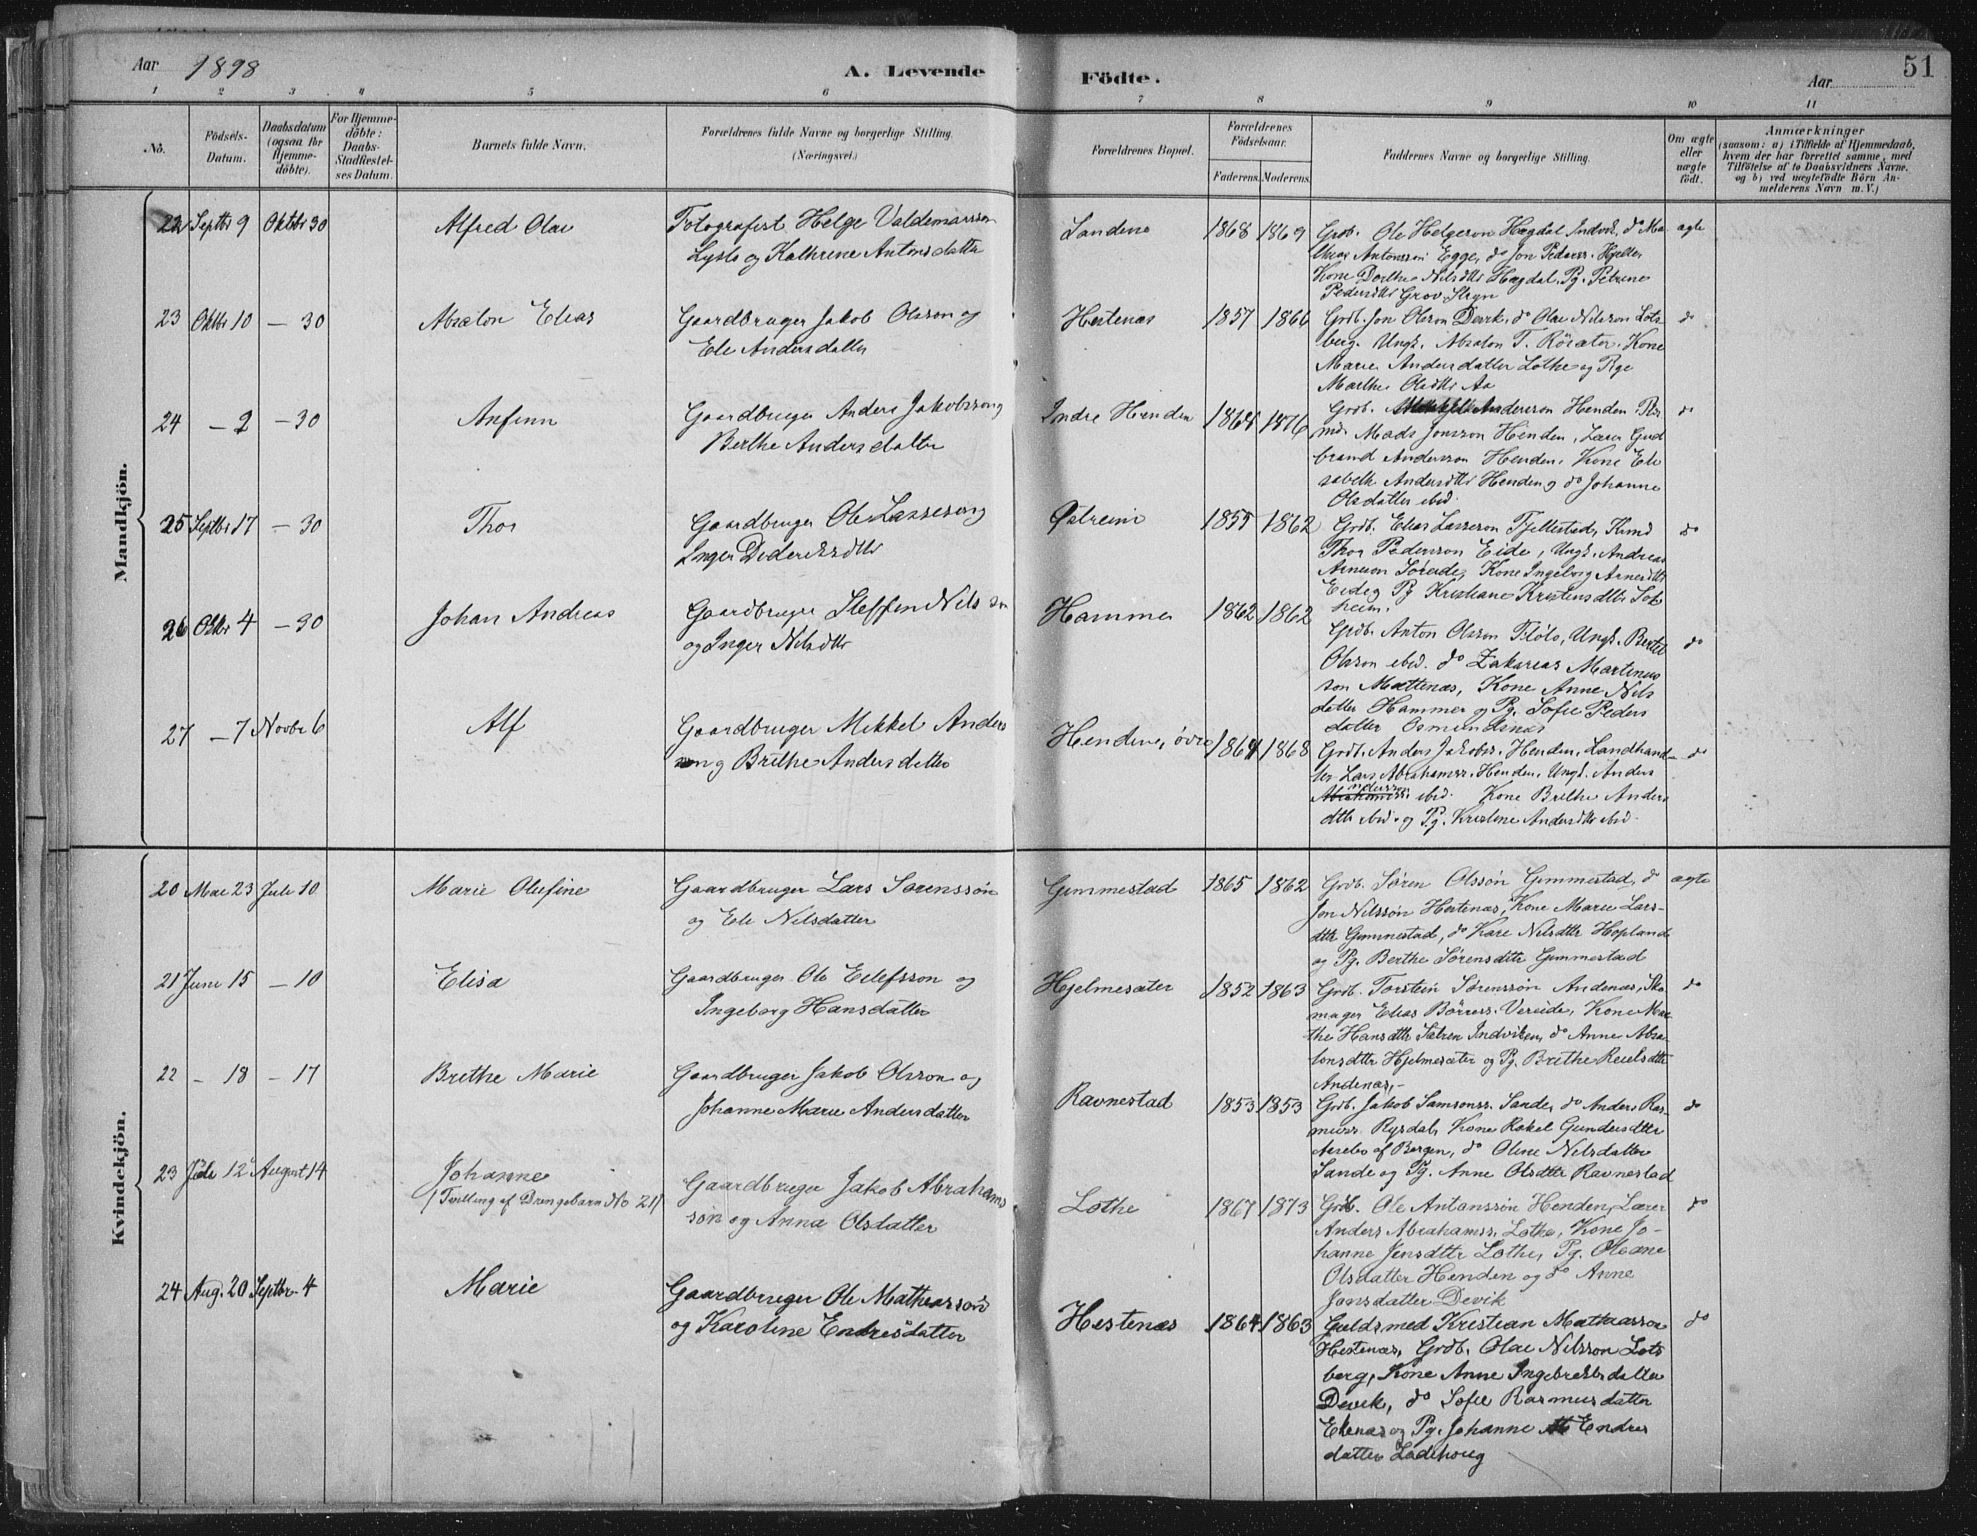 Aar 1898
A. Levende Födte.
Aar
51
1 2 3 4 5 6 7 8 9 10 11
No.
Födsels-Datum.
Daabsdatum (ogsaa for Hjemme-döbte).
For Hjemme-döbte: Daabs-Stadfæstel-ses Datum.
Barnets fulde Navn.
Forældrenes fulde Navne og borgerlige Stilling.
(Næringsvei.)
Forældrenes Bopæl.
Forældrenes Födselsaar.
Faderens. Moderens.
Faddernes Navne og borgerlige Stilling.
Om ægte eller uægte födt.
Anmærkninger
(saasom: a) i Tilfælde af Hjemmedaab, hvem der har forrettet samme, med Tilföielse af to Daabsvidners Navne, og b) ved uægtefödte Börn An-melderens Navn m. V.)
Mandkjön.
22 Septbr 9 Oktbr 30 Alfred Olai Fotografist Helge Valdemarsson
Lysto og Kathrine Antonsdatter
Sandene 1868 1869 Grdb. Ole Helgeson Hægdal Indvik, do
Antonsson Egge, do Jon Pederss. Hjelle,
Kone Dorthe Nilsdtr Hægdal, Pg. Petrine
Pedersdtr Grov Stryn
ægte
23 Oktbr 10 — 30 Absalon Elias Gaardbruger Jakob Olsson og
Eli Andersdatter
Hestenæs 1857 1866 Grdb. Jon Olsson Devik, do Olai Nilsson Lots
berg. Ungk. Absalon T. Rösæter. Kone
Marie Andersdatter Lothe og Pge
Marthe Olsdtr Aa
do
24 — 2 — 30 Anfinn Gaardbruger Anders Jakobsson og
Berthe Andersdatter
Indre Henden 1864 1876 Grdb. Andersson Henden
Mads Jonsson Henden, Lærer Gud
brand Andersson Henden. Kone Eli
sabeth Andersdtr Henden og do Johanne
Olsdatter ibid.
do
25 Septbr 17 — 30 Thor Gaardbruger Ole Lasseson og
Inger Dideriksdtr
Østreim 1855 1862 Grdb. Elias Lasseson Fjellestad, Kmd
Thor Pedersson Eide, Ungk. Andreas
Arneson Söreide, Kone Ingeborg Arnesdtr
Eide og Pg Kristiane Kristensdtr Sol
heim.
do
26 Oktbr 4 — 30 Johan Andreas Gaardbruger Steffen Nilsson
og Inger Nilsdtr
Hammer 1862 1862 Grdb. Anton Olsson Flölo, Ungk. Bertel
Olsson ibid. do Zakarias Martinus
son Mættenæs, Kone Anne Nils
datter Hammer og Pg. Sofie Peders
datter Osmundsnæs
do
27 — 7 Novbr 6 Alf Gaardbruger Mikkel Anders
son og Brithe Andersdatter
Henden, övre 1864 1868 Grdb. Anders Jakobss. Henden, Landhand-
ler Lars Abrahamss. Henden, Ungk. Anders
ndersson
Abrahamss ibid. Kone Brithe Anders
dtr ibid. og Pg. Kristine Andersdtr ibid.
do
Kvindekjön.
20 Mai 23 Juli 10 Marie Olufine Gaardbruger Lars Sörenssön
og Eli Nilsdatter
Gimmestad 1865 1862 Grdb. Sören Olssön Gimmestad, do
Jon Nilssön Hestenæs, Kone Marie Lars-
dttr Gimmestad, do Kari Nilsdttr Hopland
og Pg. Berthe Sörensdttr Gimmestad
ægte
21 Juni 15 — 10 Elisa Gaardbruger Ole Eilefsson og
Ingeborg Hansdatter
Hjelmesæter 1852 1863 Grdb. Torstein Sörenssön Andenæs, Sko
mager Elias Börress. Vereide, Kone Mar
the Hansdttr Sætren Indviken, do Anne Absa
lonsdttr Hjelmesæter og Pg. Brithe Reielsdttr
Andenæs.-
do
22 — 18 — 17 Brithe Marie Gaardbruger Jakob Olsson og
Johanne Marie Andersdatter
Ravnestad 1853 1853 Grdb. Jakob Samsonss. Sande, do Anders Ras-
muss. Rysdal, Kone Rakel Gundersdttr
Aarebo af Bergen, do Oline Nilsdatter
Sande og Pg. Anne Olsdttr Ravnestad
do
23 Juli 12 August 14 Johanne Gaardbruger Jakob Abrahams
(Tvilling af Drengebarn No 21)
sön og Anna Olsdatter
Lothe 1867 1873 Grdb. Ole Antonssön Henden, Lærer
Anders Abrahamss. Lothe, Kone Jo-
hanne Jensdttr Lothe, Pg. Oleane
Olsdatter Henden og do Anne
Jonsdatter Devik
do
24 Aug. 20 Septbr 4 Marie Gaardbruger Ole Mathiassön
og Karoline Endresdatter
Hestenæs 1864 1863 Guldsmed Kristian Mathiasson
Hestenæs, Grdb. Olai Nilsson Lots
berg, Kone Anne Ingebrektsdatter
Devik, do Sofie Rasmusdatter
Ekenæs og Pg. Johanne Endres
datter Ladehoug
do